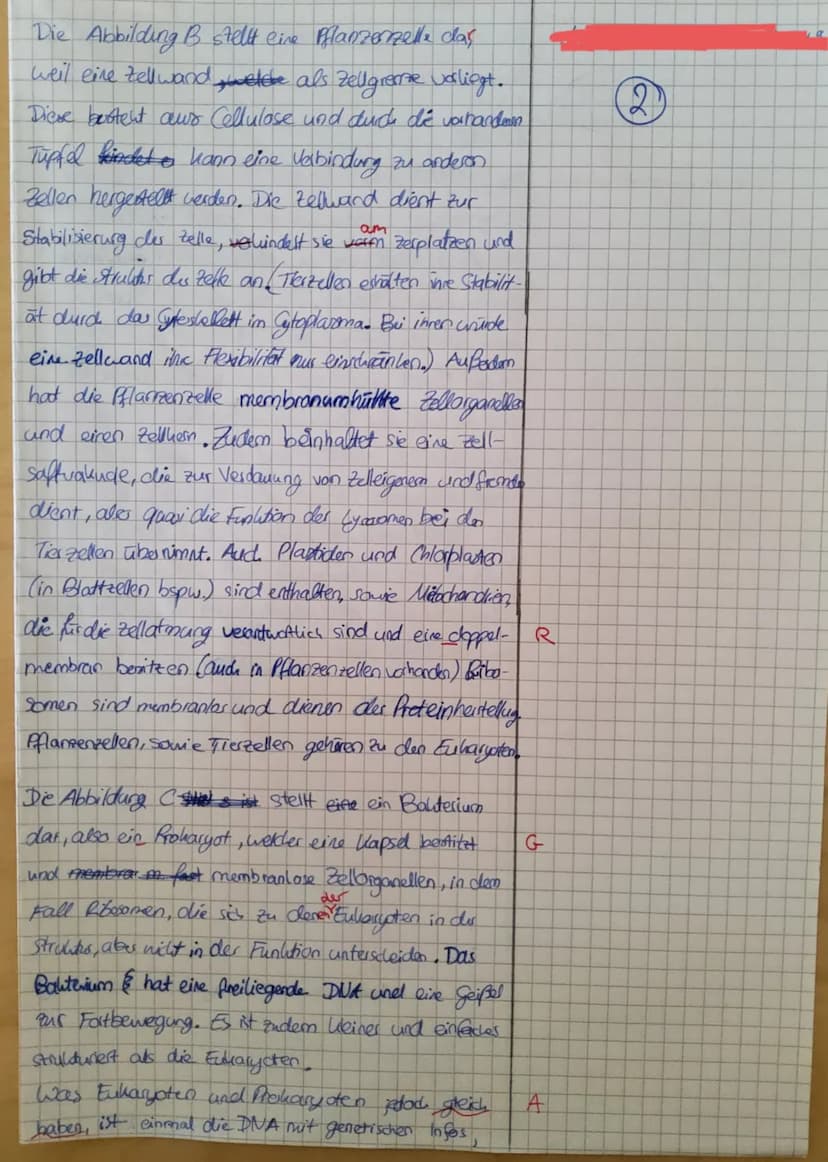 Die Abbildung B stellt eine Pflanzenzelle dar,
weil eine Zellwand, welche als Zellgrenze vorliegt.
②
Diese besteht aus Cellulose und durch die vorhandenen
Tüpfel kann eine Verbindung zu anderen
Zellen hergestellt werden. Die Zellwand dient zur
am
Stabilisierung der Zelle, verhindert sie vorm zerplatzen und
gibt die Struktur der Zelle an. (Tierzellen erhalten ihre Stabilit-
ät durch das Cytoskelett im Cytoplasma. Bei ihnen würde
eine Zellwand ihre Flexibilität nur einschränken.) Außerdem
hat die Pflanzenzelle membranumhüllte Zellorganellen
und einen Zellkern. Zudem beinhaltet sie eine Zell-
saftvakuole, die zur Verdauung von Zelleigenem und fremdem
dient, also quasi die Funktion der Lysosomen bei den
Tierzellen übernimmt. Auch Plastiden und Chlorplasten
(in Blattzellen bspw.) sind enthalten, sowie Mitochondrien,
die für die Zellatmung verantwortlich sind und eine doppel- R
membran besitzen (auch in Pflanzenzellen vorhanden) Ribo-
somen sind membranlos und dienen der Proteinherstellung.
Pflanzenzellen, sowie Tierzellen gehören zu den Eukaryoten.
Die Abbildung C stellt eine ein Bakterium
dar, also ein Prokaryot, welcher eine Kapsel besitzt G
und membranlose Zellorganellen, in dem
der
Fall Ribosomen, die sich zu denen Eukaryoten in der
Struktur, aber nicht in der Funktion unterscheiden. Das
Bakterium hat eine freiliegende DNA und eine Geißel
zur Fortbewegung. Es ist zudem kleiner und einfacher
strukturiert als die Eukaryoten.
Was Eukaryoten und Prokaryoten jedoch gleich A
haben, ist einmal die DNA mit genetischen Infos,